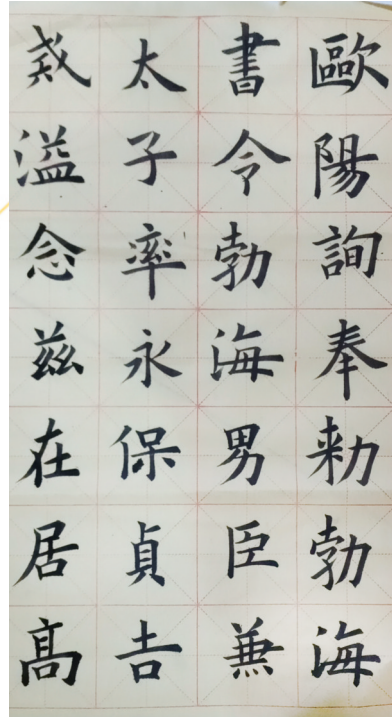 歐陽詢奉勑勃海
書令勃海男臣兼
太子率永保貞吉
戒溢念茲在居高